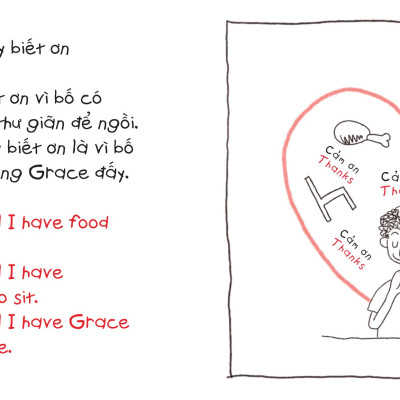 biết ơn
ơn vì bố có
thư giãn để ngồi.
biết ơn là vì bố
Grace đấy.
I have food
I have
sit.
I have Grace
Cảm ơn
Thanks
Cảm ơn
Thanks